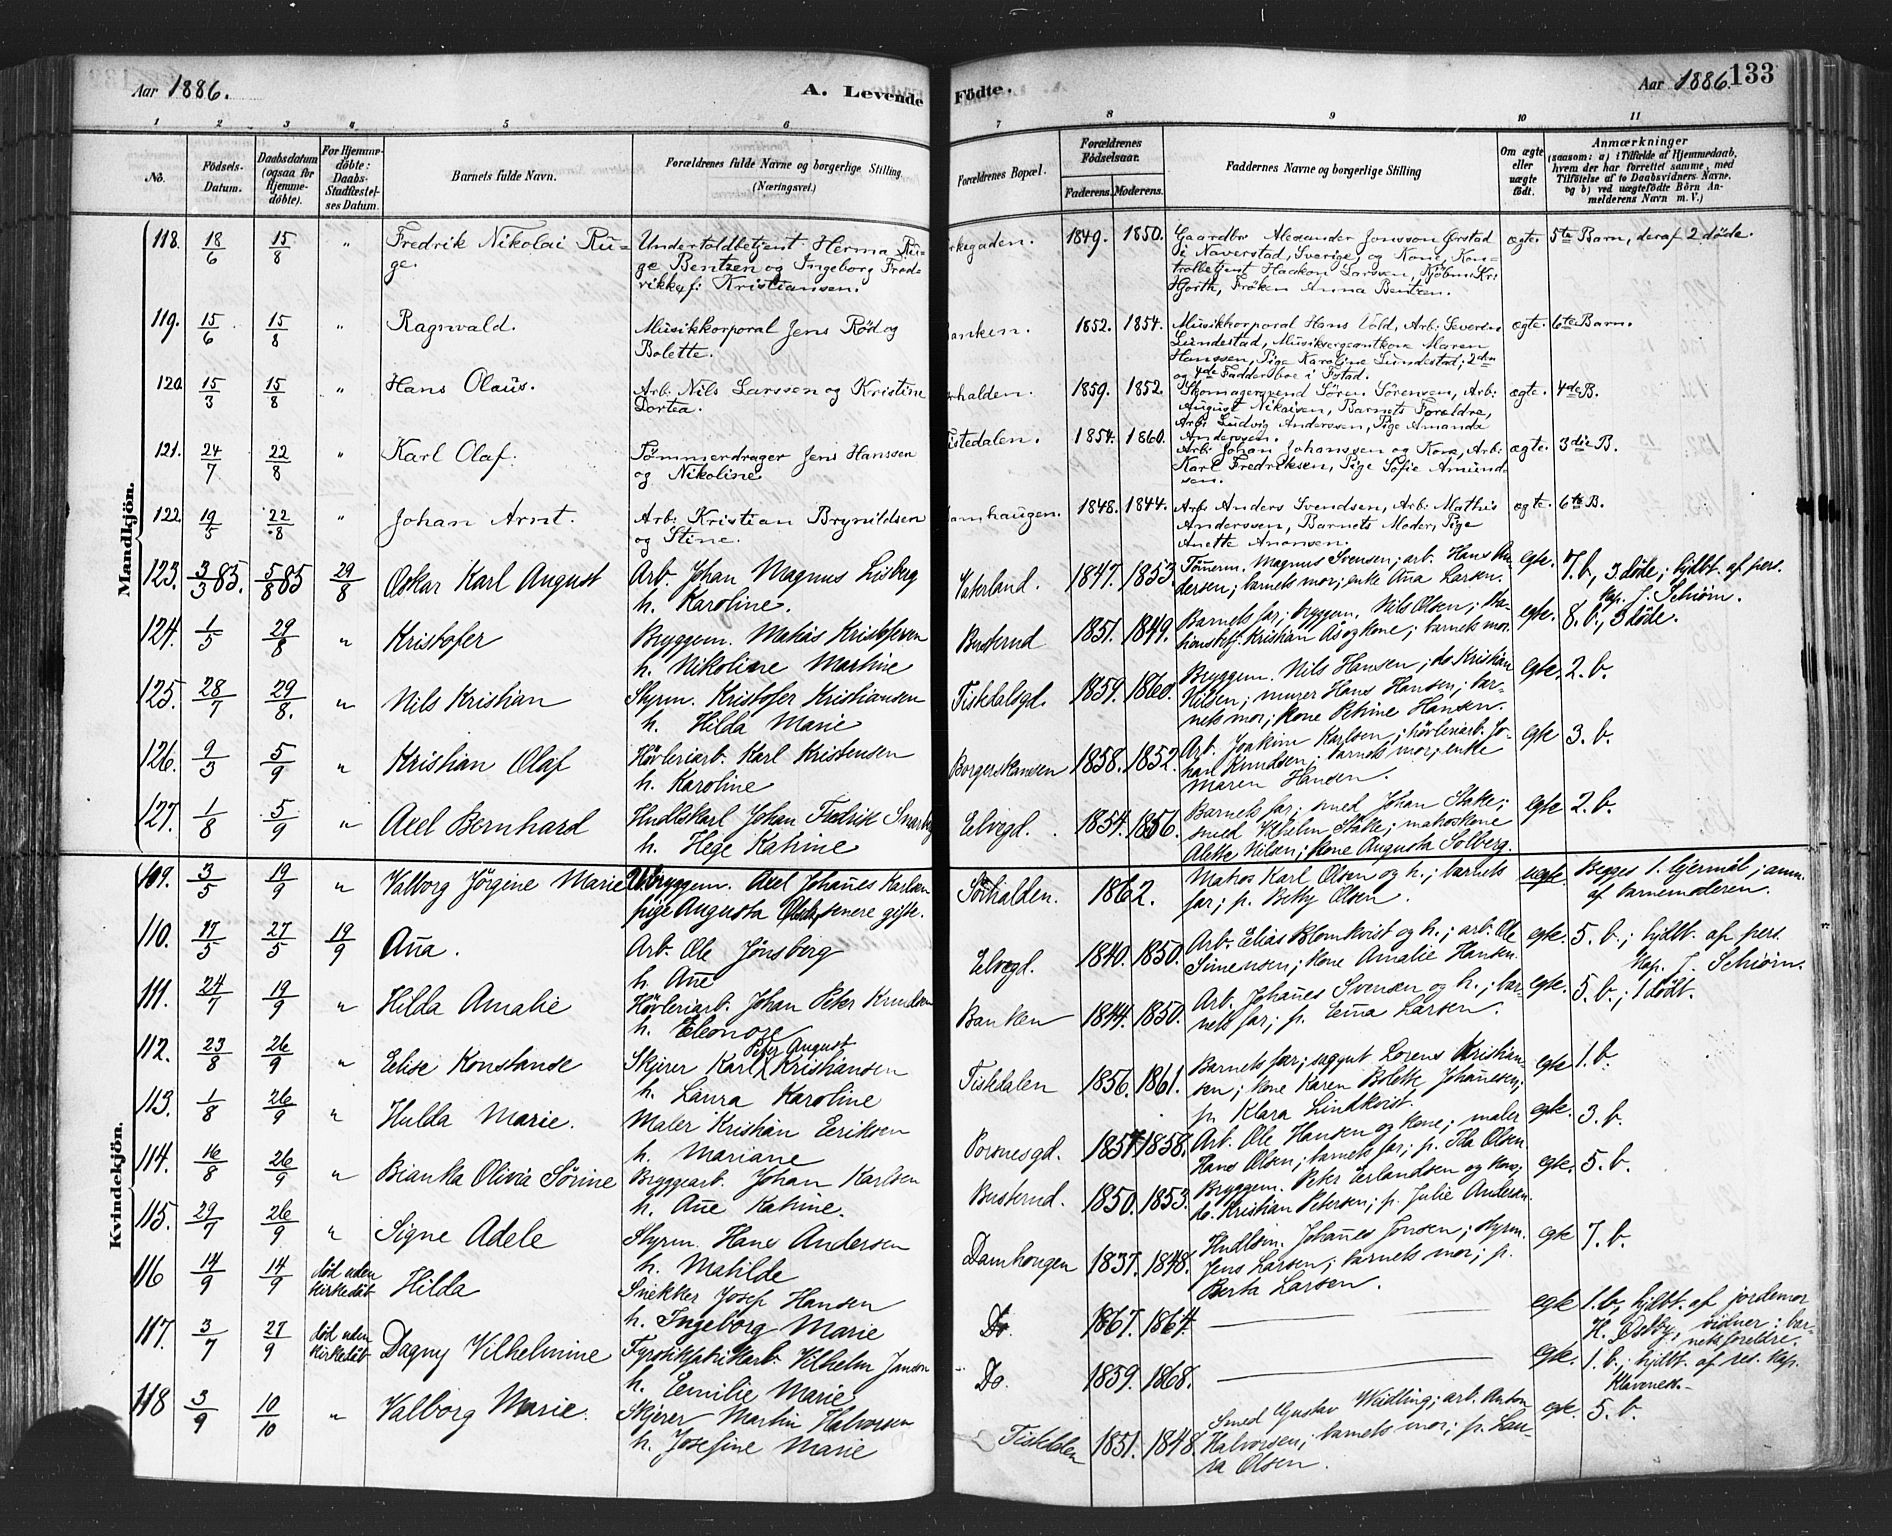 Aar 1886.
A. Levende
Födte.
Aar 1886.
133
1 2 3 4 5 6
7 8 9 10 11
No.
Födsels-
Datum.
Daabsdatum
(ogsaa for
Hjemme-
döbte).
For Hjemme-
döbte:
Daabs-
Stadfæstel-
ses Datum.
Barnets fulde Navn.
Forældrenes fulde Navne og borgerlige Stilling
(Næringsvei.)
Forældrenes Bopæl.
Forældrenes
Födselsaar.
Faderens. Moderens.
Faddernes Navne og borgerlige Stilling
Om ægte
eller
uægte
födt.
Anmærkninger
(saasom: a) i Tilfælde af Hjemmedaab,
hvem der har forrettet samme, med
Tilföielse af to Daabsvidners Navne,
og b) ved uægtefödte Börn An-
melderens Navn m. V.)
Mandkjön.
118. 18/6 15/8 " Fredrik Nikolai Ru-
ge.
Undertoldbetjent Herma Ru-
ge Bentzen og Ingeborg Fred-
rikke f: Kristiansen.
1849. 1850.
Gaardbr Alexander Jonsson Ørstad
i Naverstad, Sverige, og Kone, Kon-
trolbetjent Haakon Larssen, Kjöbm: Kr:
Hjorth, Fröken Anna Bentzen.
ægte. 5te Barn, deraf 2 døde.
119. 15/6 15/8 " Ragnvald.
Musikkorporal Jens Röd og
Bolette.
1852. 1854.
Musikkorporal Hans Vold, Arb: Severin
Lundestad, Musiksergeantkone Maren
Hanssen, Pige Karoline Lundestad; 2den
og 4de Fadder boe i F:stad.
ægte. 6te Barn.
120 15/3 15/8 " Hans Olaus.
Arb: Nils Larssen og Kristine
Dortea.
1859. 1852.
Skomagersvend Sören Sörensen, Arb:
August Nikaisen, Barnets Forældre,
Arb: Ludvig Anderssen, Pige Amanda
Anderssen.
ægte. 4de B.
121. 24/7 22/8 " Karl Olaf.
Tömmerdrager Jens Hanssen
og Nikoline
1854. 1860.
Arb: Johan Johanssen og Kone, Arb:
Karl Fredriksen, Pige Sofie Amund-
sen.
ægte. 3die B.
122 19/5 22/8 " Johan Arnt.
Arb: Kristian Brynildsen
og Stine.
1848. 1844.
Arb: Anders Svendsen, Arb: Mathis
Anderssen, Barnets Moder, Pige
Anette Anonsen.
ægte. 6te B.
123. 3/3 85. 5/8 85 29/8 Oskar Karl August
Arb. Johan Magnus Lisberg
h. Karoline.
Vaterland. 1847. 1853.
Tömerm. Magnus Svensen; arb. Hans An-
dersen; barnets mor; enke Aña Larsen.
egte. 7. b., 3 døde; hjdbt. af pers.
Kap. J. Schiörn.
124. 1/5 29/8 " Kristofer
Bryggem. Matias Kristofersen
h. Nikoline Martine
Busterud 1851. 1849.
Barnets far; bryggem. Nils Olsen;
Kristian Ås og kone; barnets mor.
egte. 8. b., 3 døde.
125. 28/7 29/8. " Nils Kristian
Styrm. Kristofer Kristiansen
h. Hilda Marie
Tistedalsgd. 1859. 1860.
Bryggem. Nils Hansen; do Kristian
Nilsen; murer Hans Hansen; bar-
nets mor; kone Petrine Hansen.
egte. 2. b.
126. 9/3 5/9 " Kristian Olaf
Hövleriarb. Karl Kristensen
h. Karoline
Borgerskansen 1858. 1852.
Arb. Joakim Karlsen; hövleriarb. Jo-
han Knudsen; barnets mor; enke
Maren Hansen.
egte 3. b.
127. 1/8 5/9 " Axel Bernhard
Hndlskarl Johan Fredrik Snarberg
h. Hege Katrine
Elvegd. 1854. 1856.
Barnets far; smed Johan Stake;
smed Vilhelm Stake; matroskone
Alette Nilsen; kone Augusta Solberg.
egte 2. b.
Kvindekjön.
109. 3/5 19/9 " Valborg Jörgine Marie
Ubryggem. Axel Johañes Karlsen
pige Augusta Olsen, senere gifte.
Sörhalden. 1862.
Matros Karl Olsen og h.; barnets
far; p. Betty Olsen.
uegte. Begges 1. leiermål; anm.
af barnemoderen.
110. 17/5 27/5 19/9 Aña.
Arb. Ole Jönsberg
h. Añe
Elvegd. 1840. 1850.
Arb. Elias Blomkvist og h.; arb. Ole
Simensen; kone Amalie Hansen.
egte. 5. b.; hjdbt. af pers.
Kap. J. Schiörn.
111. 24/7 19/9 " Hilda Amalie
Hövleriarb. Johan Peter Knudsen
h. Eleonore
Banken 1844. 1850.
Arb. Johañes Svensen og h.; bar-
nets far; p. Emma Larsen.
egte. 5. b.; 1 dødt.
112. 23/8 26/9 " Elise Konstanse
Peter August
Skjærer Karl Kristiansen
h. Laura Karoline
Tistedalen 1856. 1861.
Barnets far; Lorens Kristian-
sen; kone Karen Bolette Johañesen;
p. Klara Lindkvist.
egte 1. b.
113. 1/8 26/9 " Hulda Marie.
Maler Kristian Eriksen
h. Mariane
Porsnesgd. 1857 1858.
Arb. Ole Hansen og kone; maler
Hans Olsen; barnets far; p. Ida Olsen
egte. 3. b.
114. 16/8 26/9 " Bianka Olivia Sörine
Bryggearb. Johan Karlsen
h. Añe Katrine.
Busterud. 1850. 1853.
Bryggem. Peter Erlandsen og kone;
do. Kristian Petersen; p. Julie Andersen.
egte. 5. b.
115. 29/7 26/9 " Signe Adele
Styrm. Hans Andersen
h. Matilde
Damhougen 1837. 1848.
Hndlsm. Johañes Jonsen; styrm.
Jens Larsen; barnets mor; p.
Berta Larsen.
egte 7. b.
116 14/9 14/9 død uden
kirkedåb Hilda
Snekker Josep Hansen
h. Ingeborg Marie
Do. 1867. 1864.
egte 1. b; hjdbt. af jordemor
H. Østby, vidner: bar-
nets foreldre.
117. 3/7 27/9 død uden
kirkedåb Dagny Vilhelmine
Fyrstikfabrikarb. Vilhelm Janson
h. Emilie Marie
Do. 1859. 1868.
egte. 1. b.; hjdbt. af res. Kap.
Klaveness.
118 3/9 10/10 " Valborg Marie.
Skjærer Martin Halvorsen
h. Josefine Marie
Tistedalen 1851. 1848.
Smed Gustav Widling; arb. Anton
Halvorsen; barnets mor; p. Lau-
ra Olsen.
egte. 5. b.